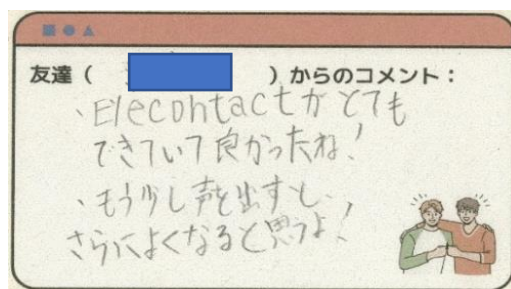 友達（　　　）からのコメント：
、Elecontactがとても
できていて良かったね！
、もう少し声を出すし、
さらによくなると思うよ！